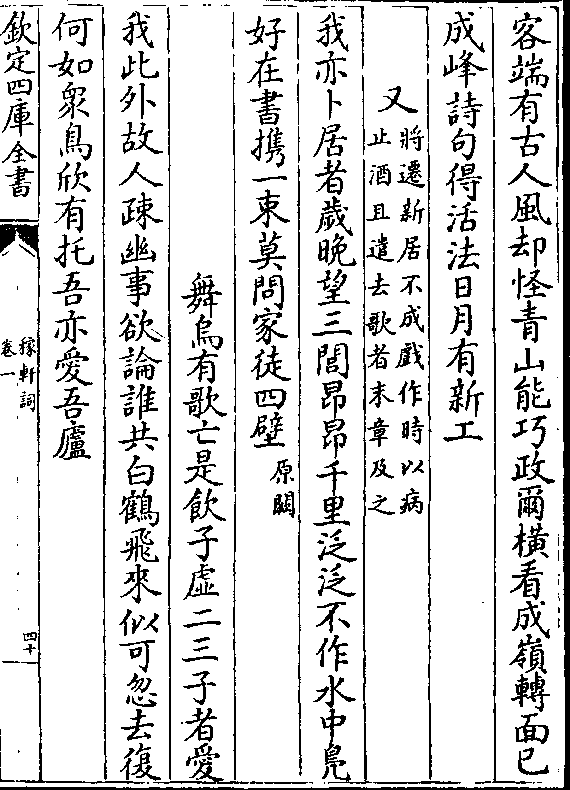 客端有古人風却怪青山能巧政爾横看成嶺轉面已
成峰詩句得活法日月有新工
又
將遷新居不成戲作時以病
止酒且遣去歌者末章及之
我亦卜居者歲晚望三閭昂昂千里泛泛不作水中鳧
好在書攜一束莫問家徒四壁
原闕
舞烏有歌亡是飲子虛二三子者愛
我此外故人疎幽事欲論誰共白鶴飛來似可忽去復
何如衆鳥欣有托吾亦愛吾廬
欽定四庫全書
稼軒詞
卷一
四十